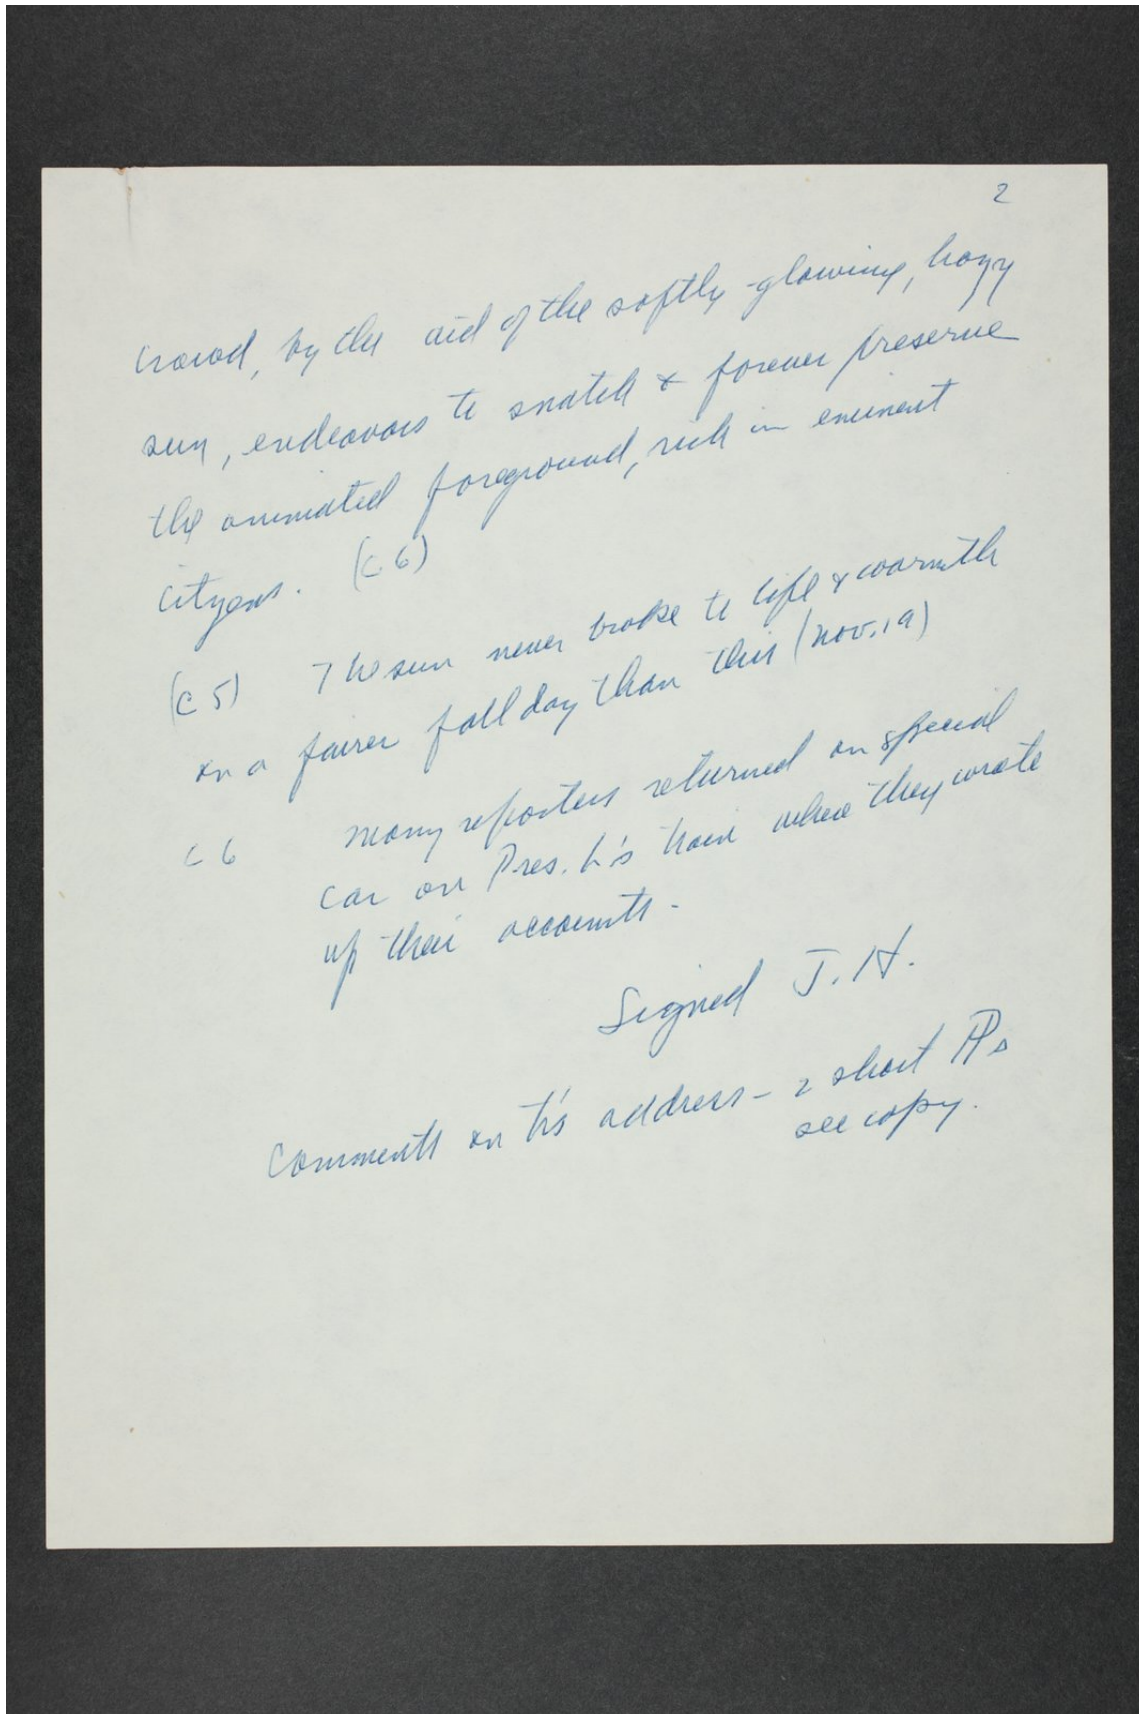 2
crowd, by the aid of the softly-glowing, hazy
sun, endeavors to snatch & forever preserve
the animated foreground, rich in eminent
citizens. (C 6)
(C 5) The sun never broke to life & warmth
on a fairer fall day than this (Nov. 19)
C 6 Many reporters returned on special
car on Pres. L's train where they wrote
up their accounts -
Signed J. H.
Comments on L's address - 2 short PPs
see copy.